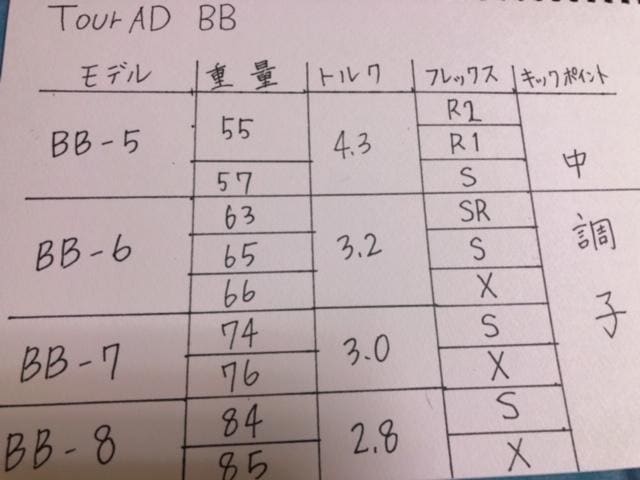 Tour AD BB
モデル 重量 トルク フレックス キックポイント
BB-5 55 4.3 R2 中調子
R1
57 S
BB-6 63 3.2 SR
65 S
66 X
BB-7 74 3.0 S
76 X
BB-8 84 2.8 S
85 X